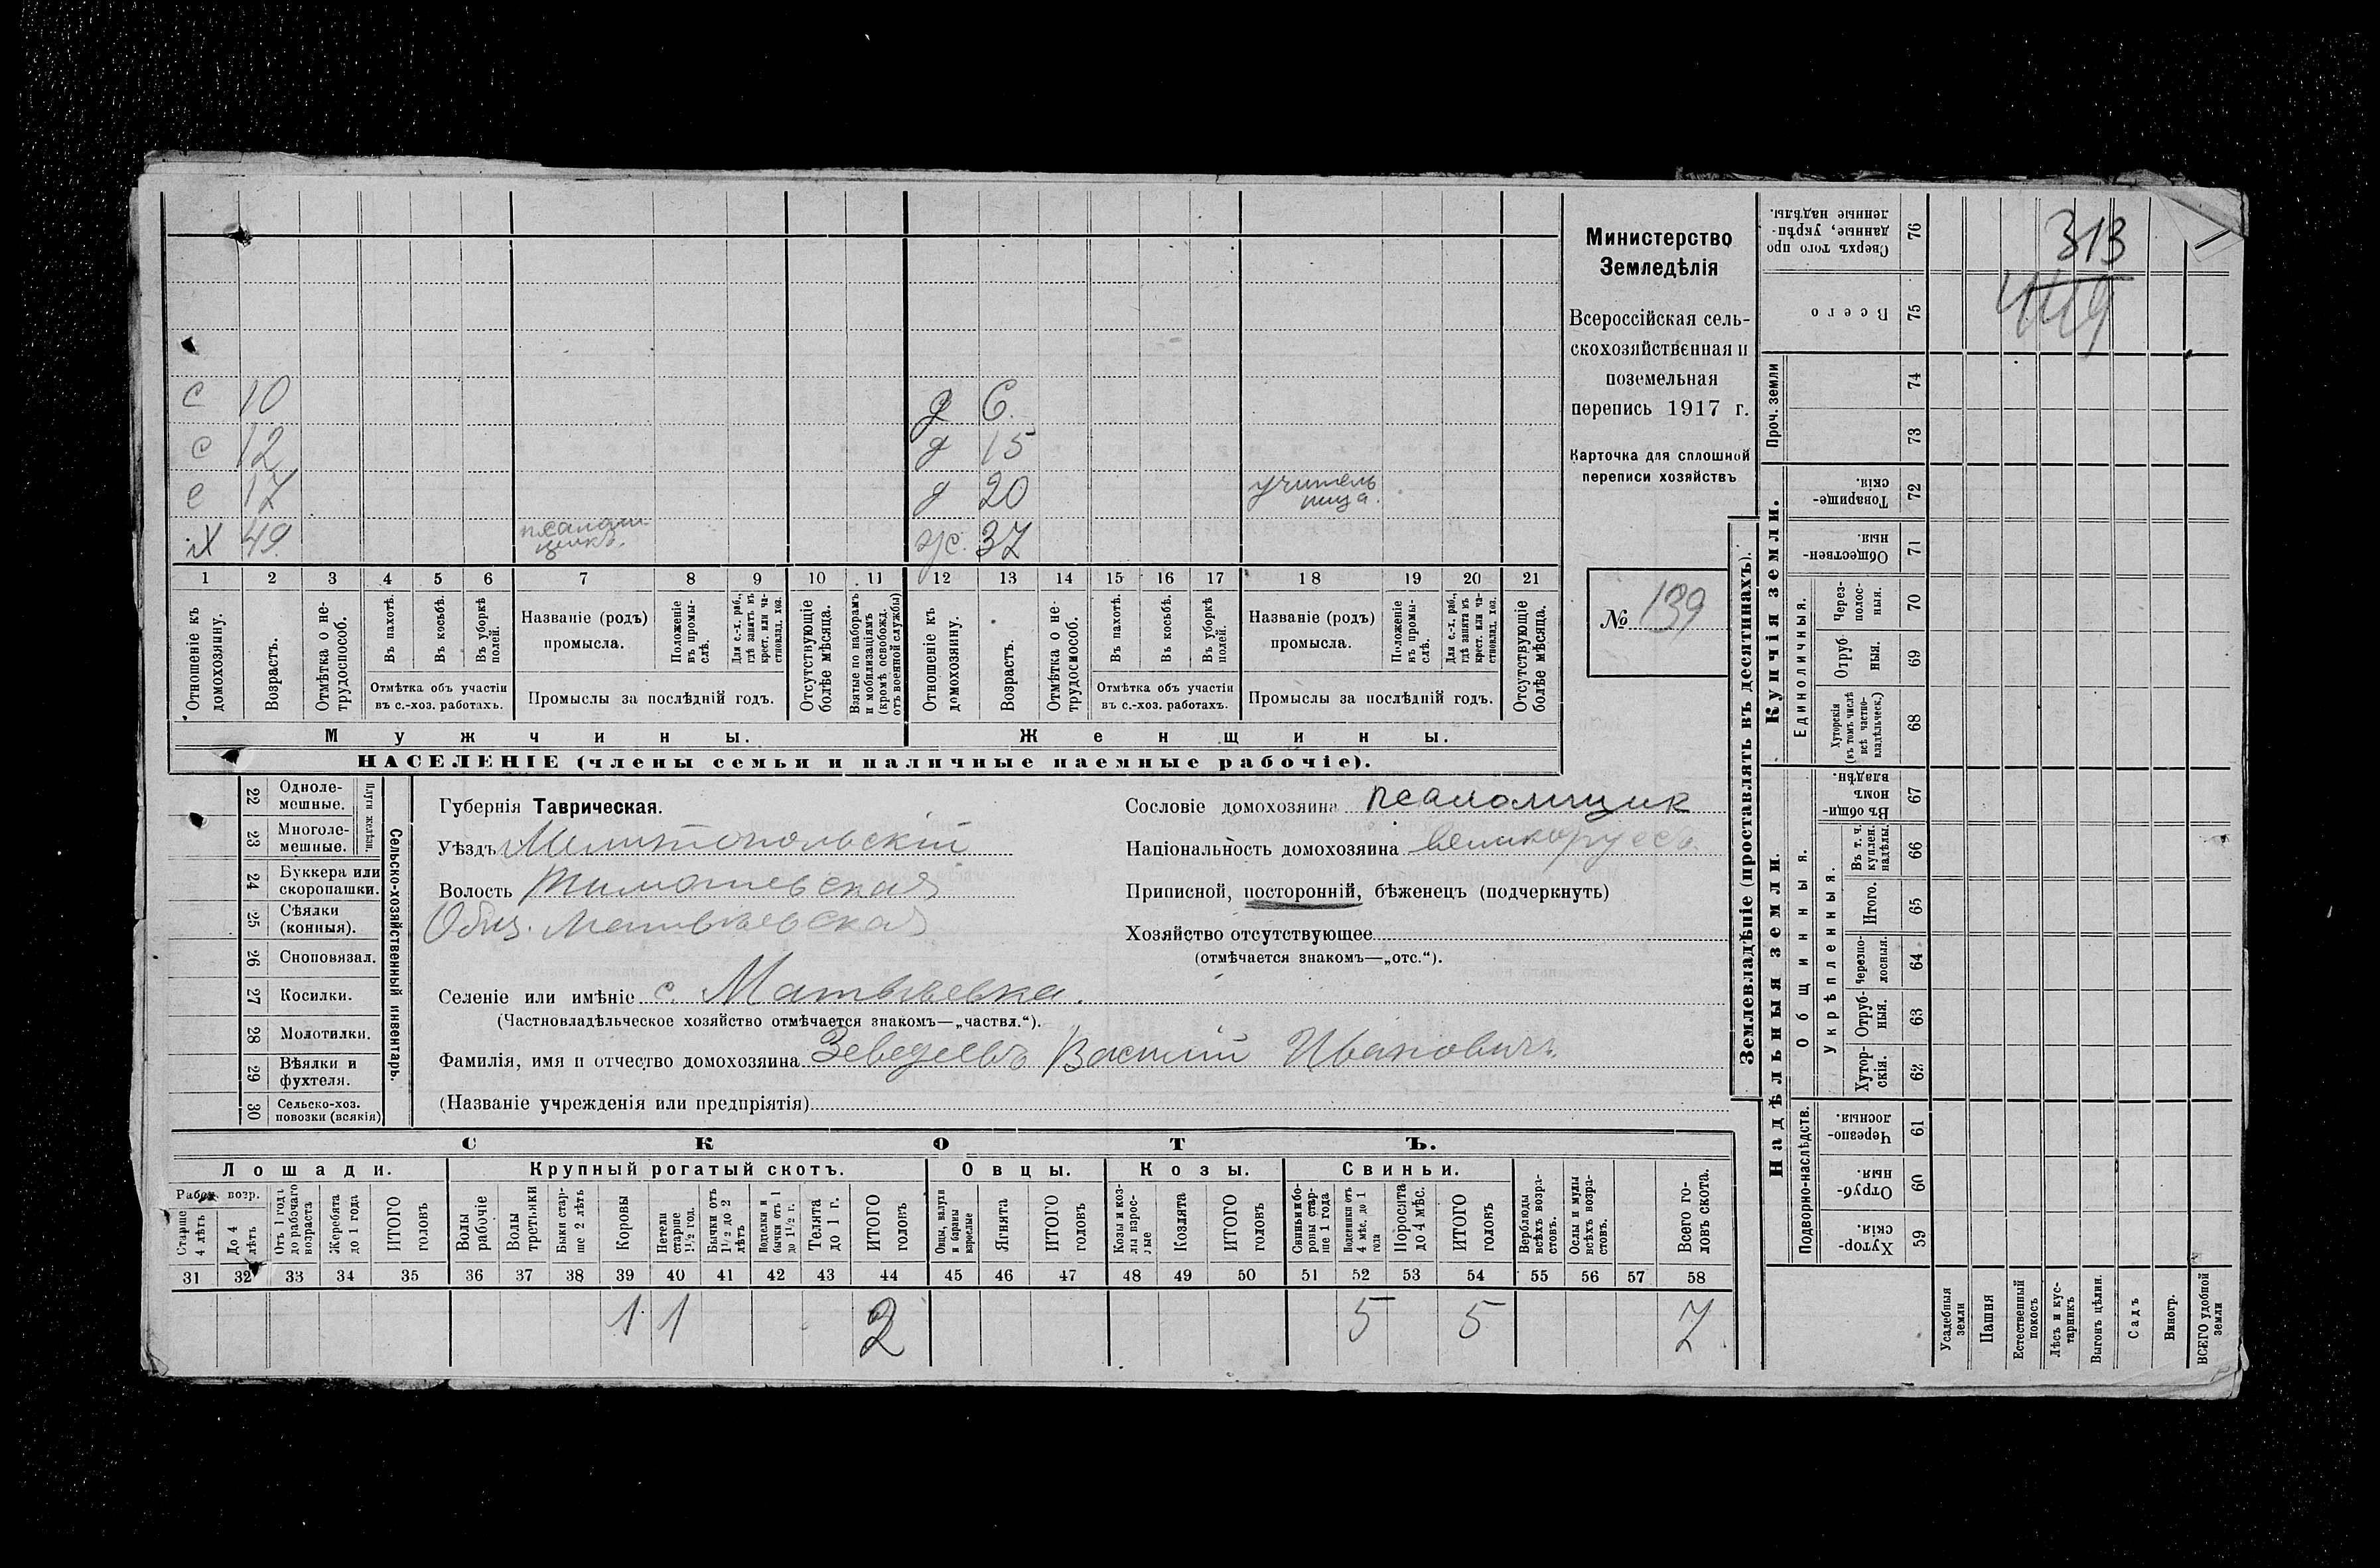 с 10 д 6
с 12 д 15
с 17 д 20 учитель
ница.
х 49 псалом
щикъ. ж. 37
1 2 3 4 5 6 7 8 9 10 11 12 13 14 15 16 17 18 19 20 21
Отношеніе къ домохозяину.
Возрастъ.
Отмѣтка о не-
трудоспособ.
Въ пахотѣ.
Въ косьбѣ.
Въ уборкѣ полей.
Отмѣтка объ участіи
въ с.-хоз. работахъ.
Названіе (родъ)
промысла.
Положеніе
въ промы-
слѣ.
Для с.-х. раб.,
гдѣ занятъ въ
крест. или ча-
стновлад. хоз.
Промыслы за послѣдній годъ.
Отсутствующіе
болѣе мѣсяца.
Взятые по наборамъ
и мобилизаціямъ
(кромѣ освобожд.
отъ военной службы)
Отношеніе къ
домохозяину.
Возрастъ.
Отмѣтка о не-
трудоспособ.
Въ пахотѣ.
Въ косьбѣ.
Въ уборкѣ
полей.
Отмѣтка объ участіи
въ с.-хоз. работахъ.
Названіе (родъ)
промысла.
Положеніе
въ промы-
слѣ.
Для с.-х. раб.,
гдѣ занята въ
крест. или ча-
стновлад. хоз.
Промыслы за послѣдній годъ.
Отсутствующіе
болѣе мѣсяца.
Мужчины. Женщины.
НАСЕЛЕНІЕ (члены семьи и наличные наемные рабочіе).
Министерство
Земледѣлія
Всероссійская сель-
скохозяйственная и
поземельная
перепись 1917 г.
Карточка для сплошной
переписи хозяйствъ
№ 139
22 Одноле-
мешные.
23 Многоле-
мешные.
Плуги желѣзн.
24 Буккера или
скоропашки.
25 Сѣялки
(конныя).
26 Сноповязал.
27 Косилки.
28 Молотилки.
29 Вѣялки и
фухтеля.
30 Сельско-хоз.
повозки (всякія)
Сельско-хозяйственный инвентарь.
Губернія Таврическая.
Уѣздъ Мелитопольскій
Волость Тимошевская
Общ. Матвѣевская
Сословіе домохозяина псаломщик
Національность домохозяина великоруссъ
Приписной, посторонній, бѣженецъ (подчеркнуть)
Хозяйство отсутствующее
(отмѣчается знакомъ—„отс.“).
Селеніе или имѣніе с. Матвѣевка.
(Частновладѣльческое хозяйство отмѣчается знакомъ—„частвл.“).
Фамилія, имя и отчество домохозяина Зеведеевъ Василій Ивановичъ
(Названіе учрежденія или предпріятія)
СКОТЪ.
Лошади. Крупный рогатый скотъ. Овцы. Козы. Свиньи.
Рабоч. возр.
Старше
4 лѣтъ
До 4
лѣтъ
Отъ 1 года
до рабочаго
возраста
Жеребята
до 1 года
ИТОГО
головъ
Волы
рабочіе
Волы
третьяки
Быки стар-
ше 2 лѣтъ
Коровы
Нетели
старше
1 1/2 год.
Бычки отъ
1 1/2 до 2
лѣтъ
Подтелки и
бычки отъ 1
до 1 1/2 г.
Телята
до 1 г.
ИТОГО
головъ
Овцы, валухи
и бараны
взрослые
Ягнята
ИТОГО
головъ
Козы и коз-
лы взрос-
лые
Козлята
ИТОГО
головъ
Свиньи и бо-
ровы стар-
ше 1 года
Подсвинки отъ
4 мѣс. до 1
года
Поросята
до 4 мѣс.
ИТОГО
головъ
Верблюды
всѣхъ возра-
стовъ.
Ослы и мулы
всѣхъ возра-
стовъ.
Всего го-
ловъ скота.
31 32 33 34 35 36 37 38 39 40 41 42 43 44 45 46 47 48 49 50 51 52 53 54 55 56 57 58
1 1 2 5 5 7
Землевладѣніе (проставлять въ десятинахъ).
Купчія земли.
Надѣльныя земли.
Сверхъ того про
данные, укрѣп-
ленные надѣлы. 76
313
Всего 75
419
Проч. земли
74
73
Товарище-
скія. 72
Обществен-
ныя. 71
Единоличныя.
Через-
полос-
ныя. 70
Отруб
ныя. 69
Хуторскія
(въ томъ числѣ
всѣ частно-
владѣльческ.) 68
Общинныя.
Въ общи
номъ
владѣн. 67
Укрѣпленныя.
Въ т. ч.
куплен.
надѣлы. 66
Итого. 65
Черезпо-
лосныя. 64
Отруб-
ныя. 63
Хутор-
скія. 62
Подворно-наслѣдств.
Черезпо-
лосныя. 61
Отруб-
ныя. 60
Хутор-
скія. 59
Усадебныя
земли
Пашня
Естественный
покосъ
Лѣсъ и кус-
тарникъ
Выгонъ цѣлин.
Садъ
Виногр.
ВСЕГО удобной
земли